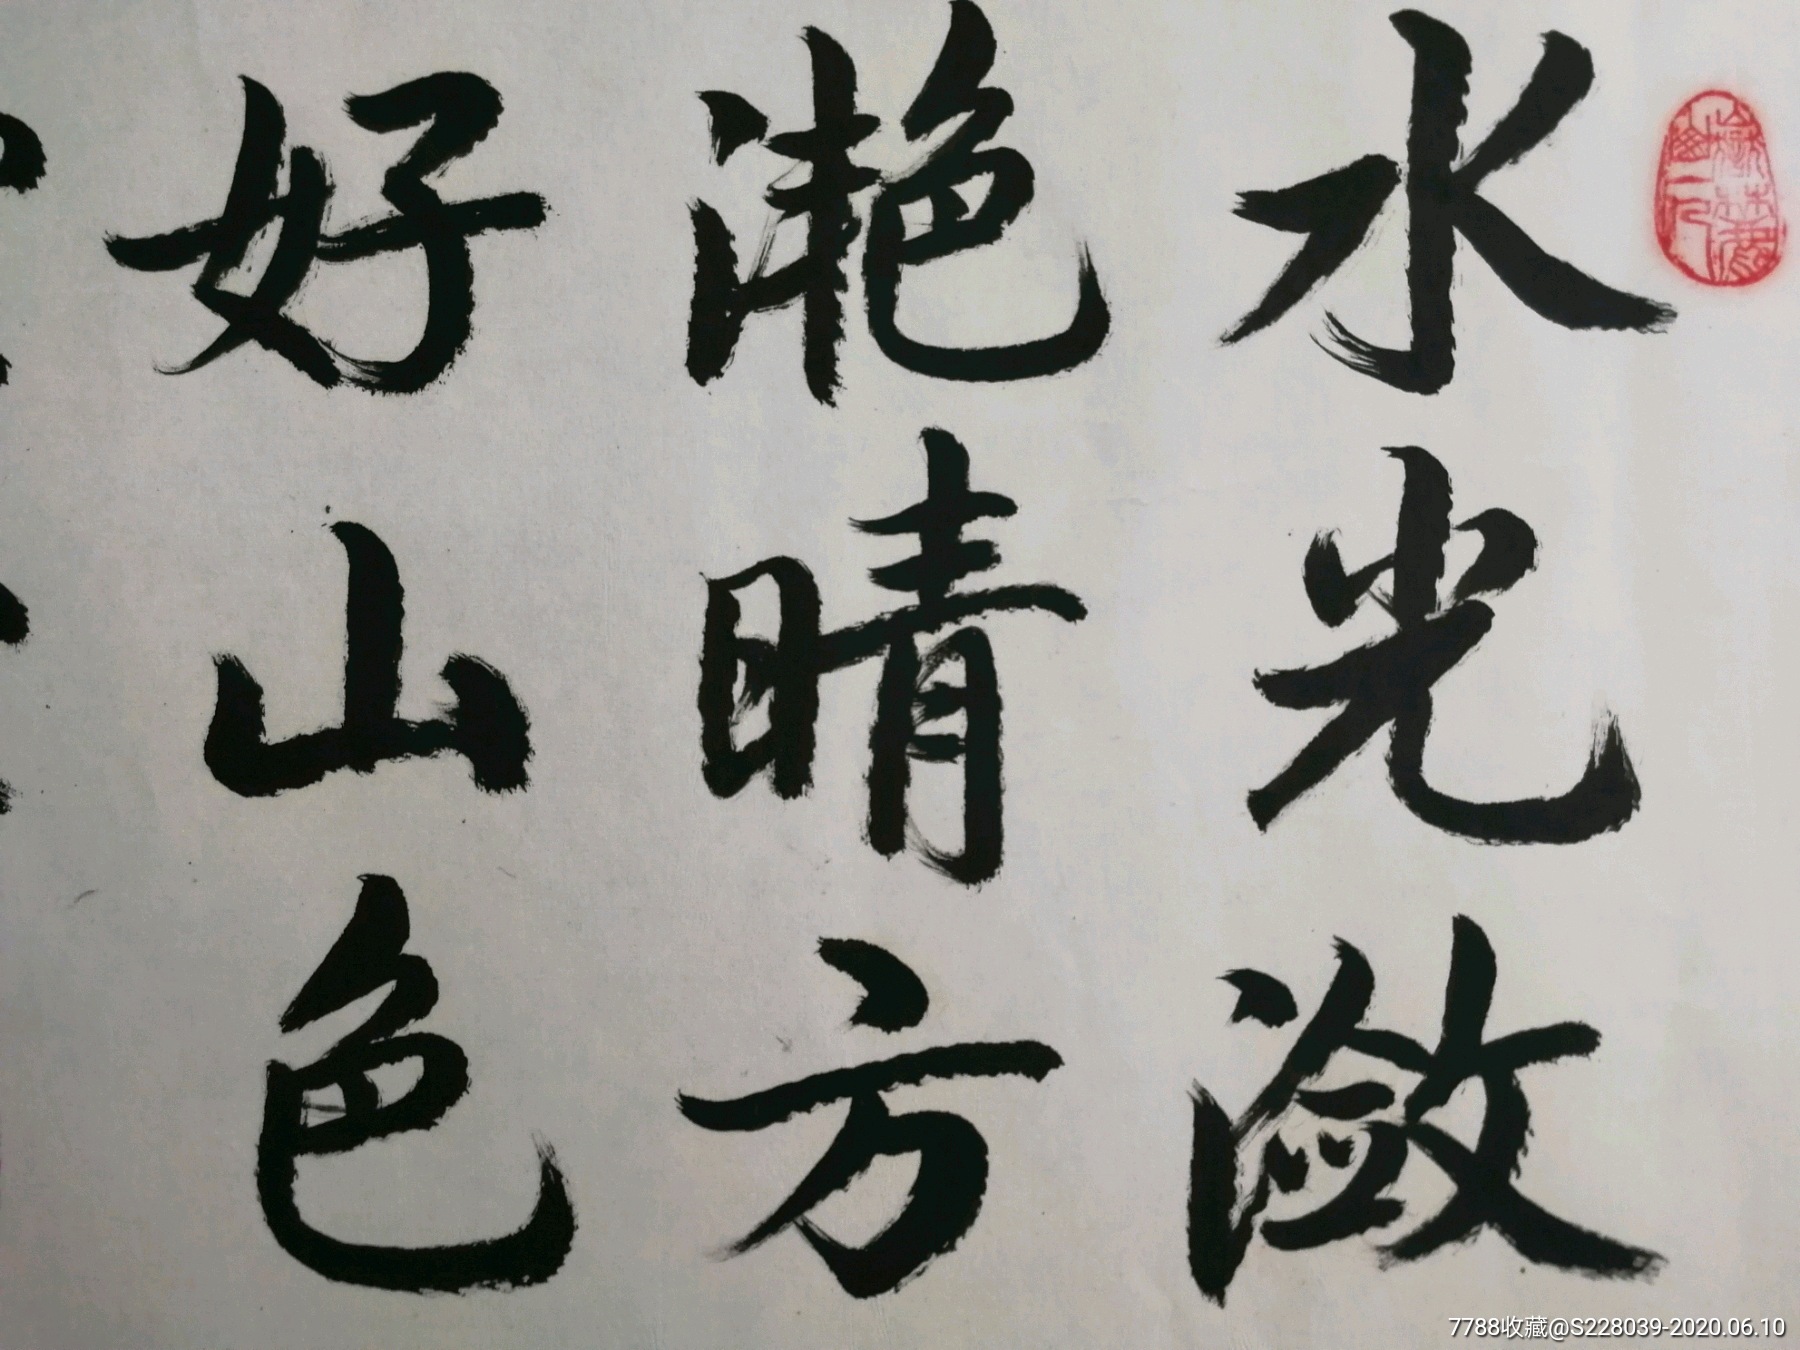 水光潋
滟晴方
好山色
7788收藏@S228039-2020.06.10